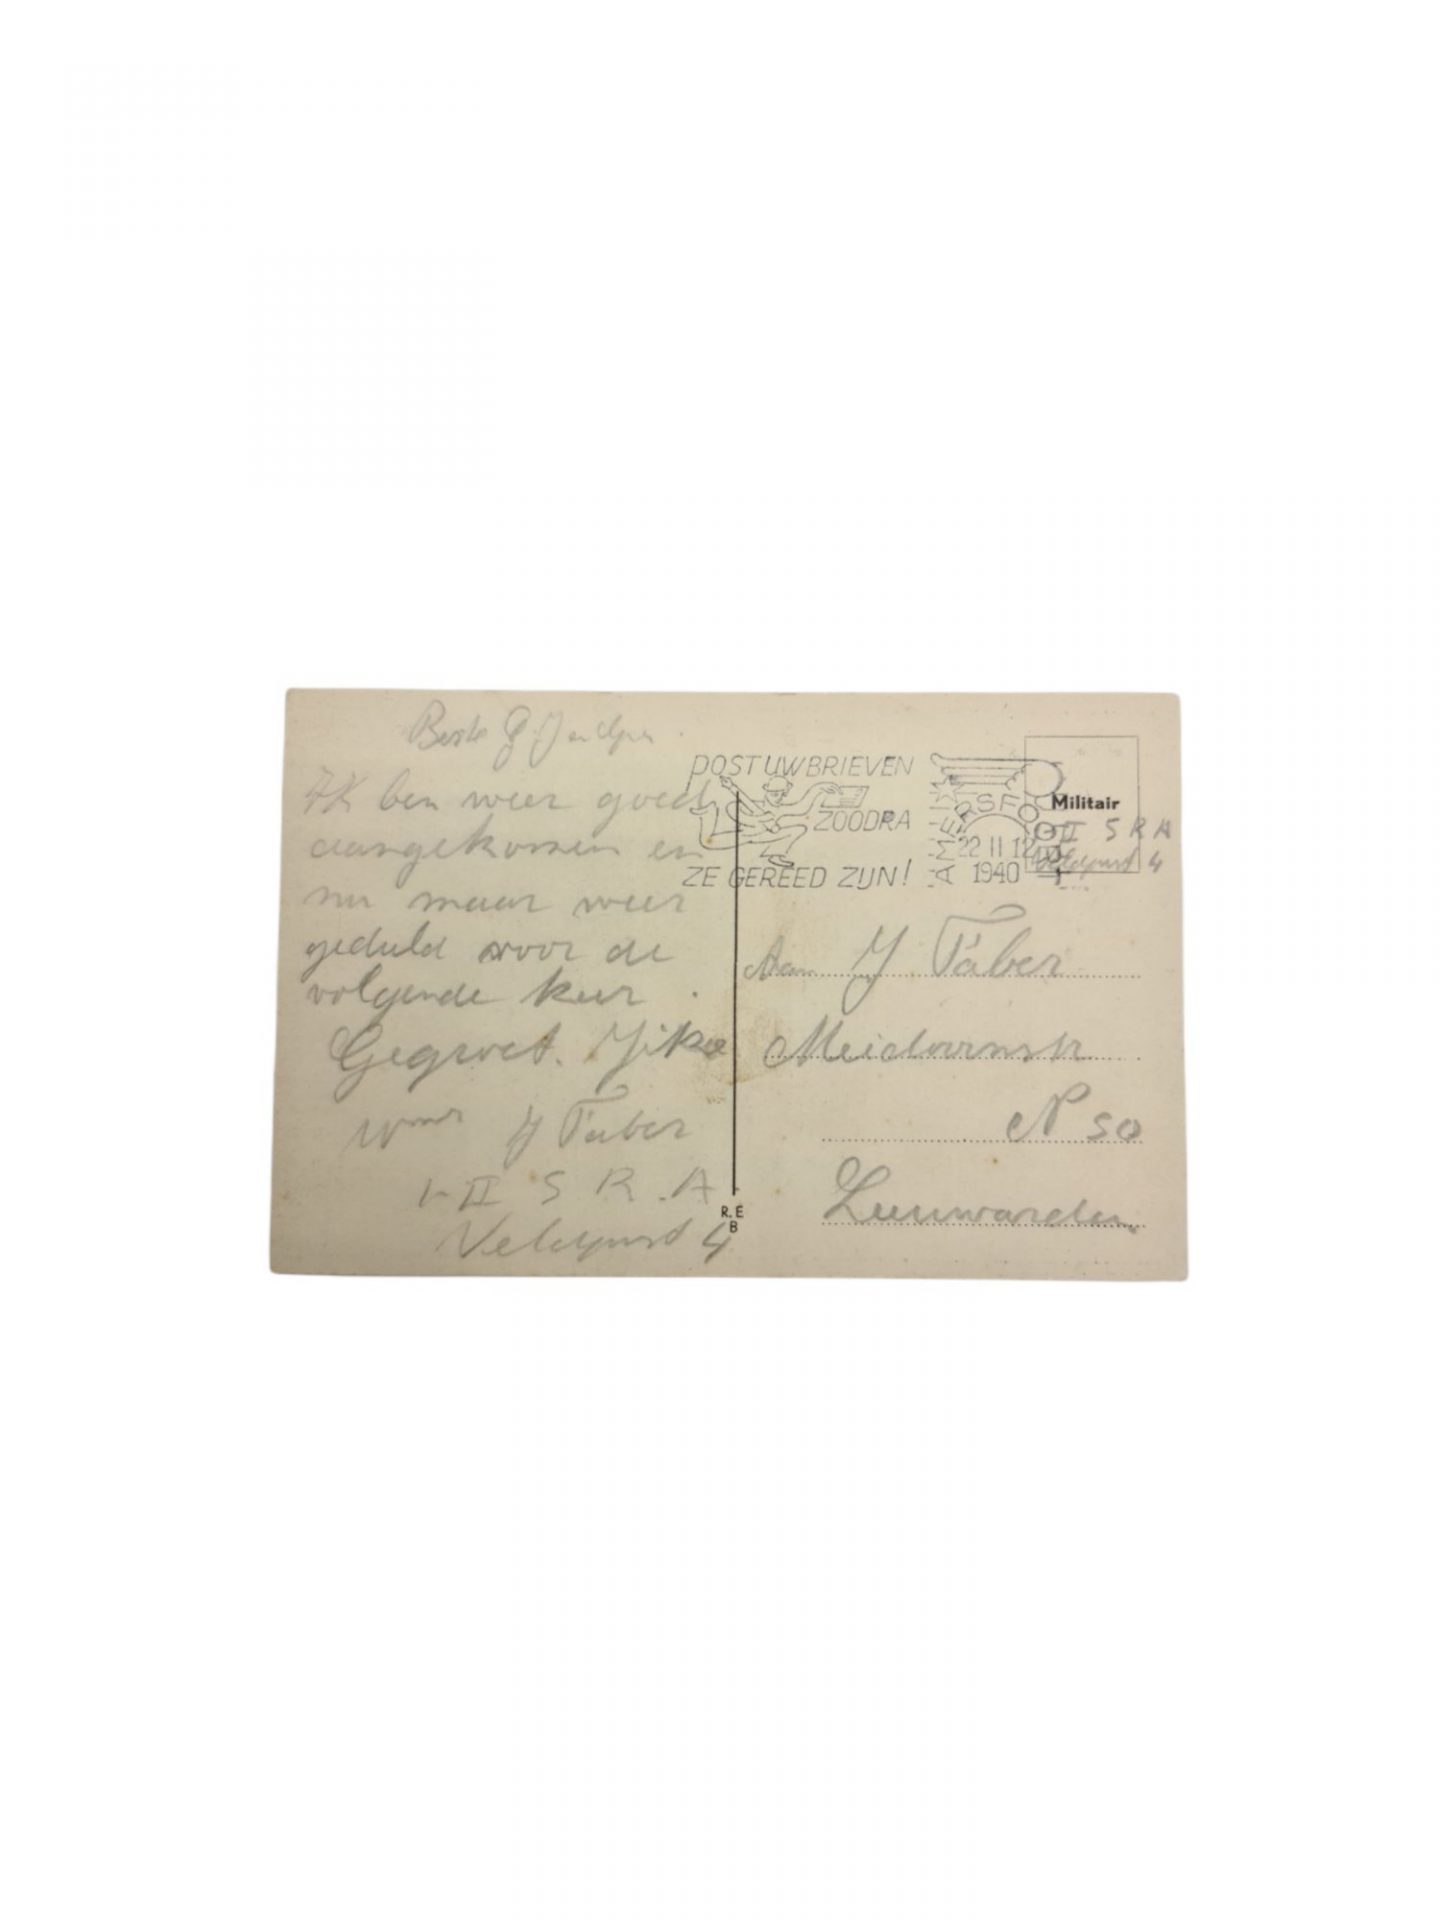 Beste
IK ben weer goed
aangekomen en
nu maar weer
geduld voor de
volgende keer.
Gegroet.
J Taber
1-II S R.A.
Veldpost 4
R.E
B
POST UW BRIEVEN
ZOODRA
ZE GEREED ZIJN!
AMERSFOORT
22 II 12
1940
Militair
II S R A
Veldpost 4
Aan J Taber
Meidoornstr
N 50
Leeuwarden